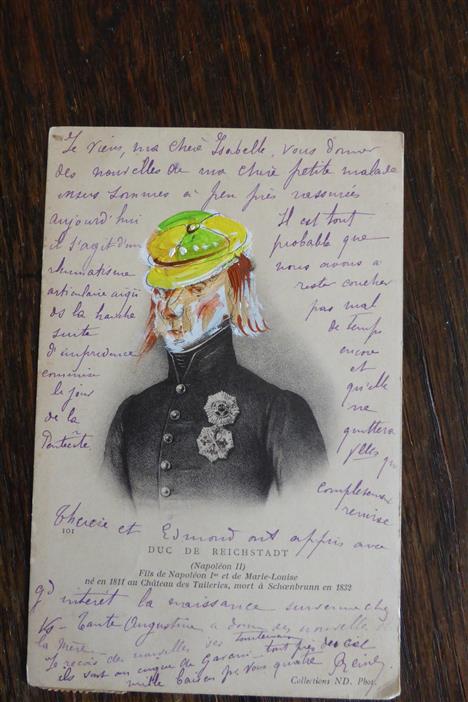 Je viens, ma chère Isabelle, vous donner
des nouvelles de ma chère petite malade
nous sommes à peu près rassurées
aujourd'hui
il s'agit d'un
rhumatisme
articulaire aigü
ds la hanche
suite
d'imprudence
commise
le jour
de la
Pentecôte
Il est tout
probable que
nous avons à
rester coucher
pas mal
de temps
encore
et
qu'elle
ne
quittera
complètement
remise
Thérèse et Edmond ont appris avec
101
DUC DE REICHSTADT
(Napoléon II)
Fils de Napoléon Ier et de Marie-Louise
né en 1811 au Château des Tuileries, mort à Schœnbrunn en 1832
gd intérêt la naissance survenue chez
Tante Augustine a donné des nouvelles de
la mère.
Je reçois des nouvelles ses
tout près du ciel
ils sont au cirque de Gavarni
mille baisers pr vous quatre
Collections ND. Phot.